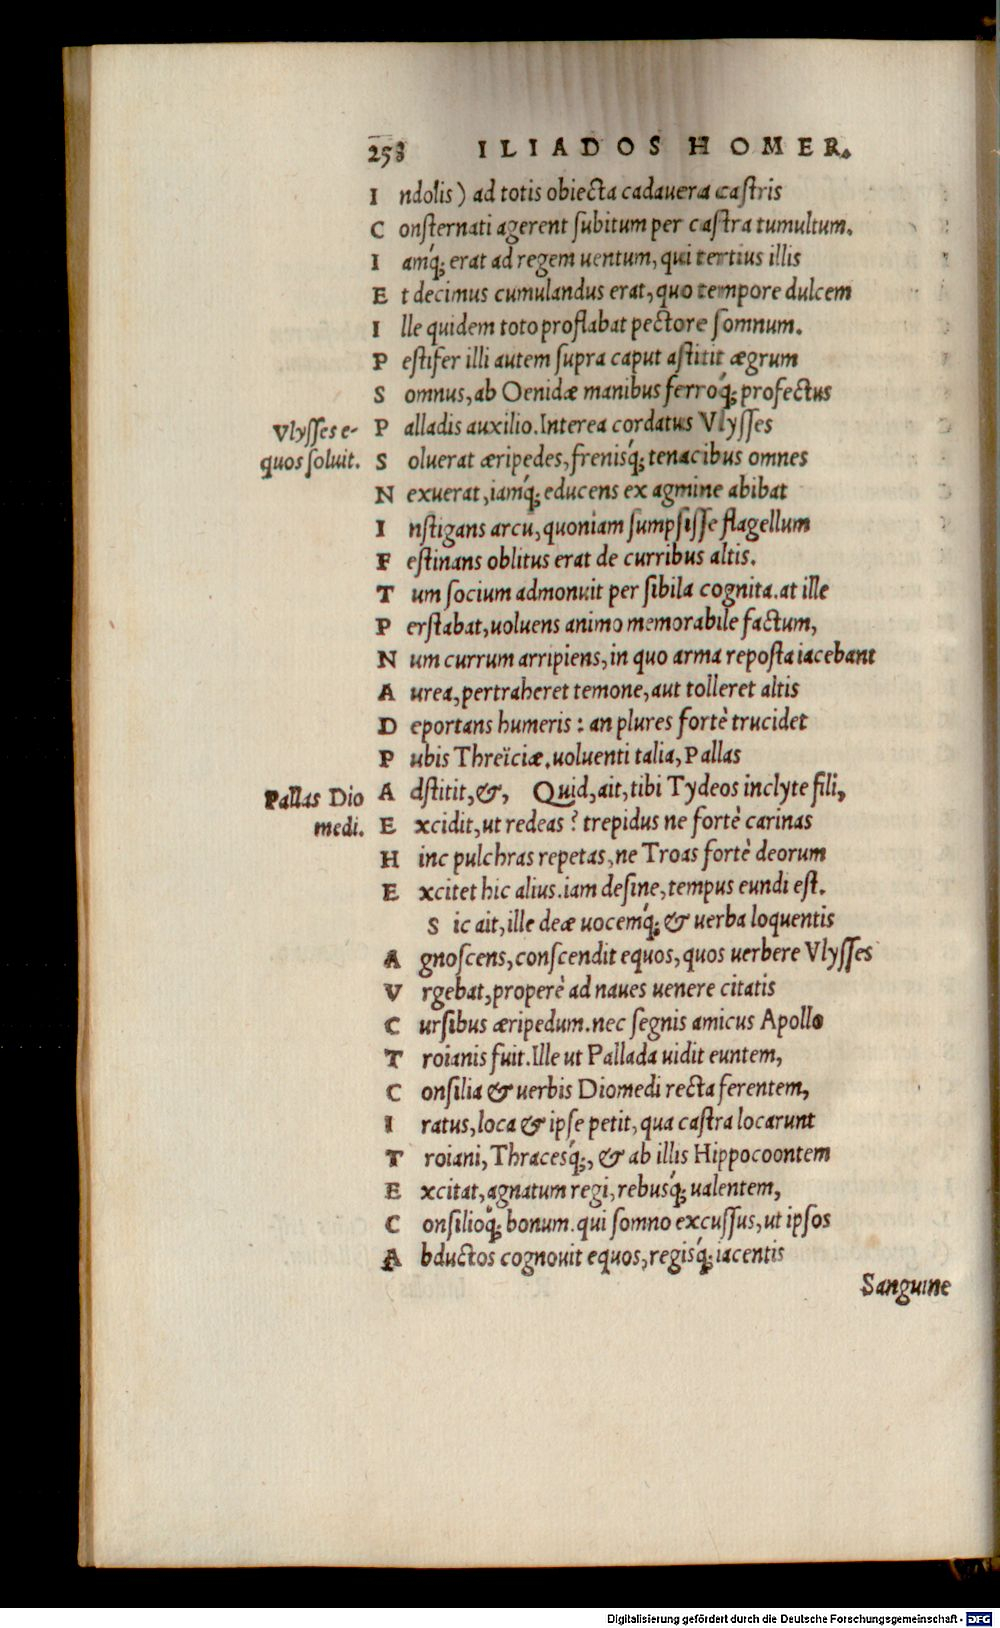 258 ILIADOS HOMER.
Indolis) ad totis obiecta cadauera castris
Consternati agerent subitum per castra tumultum.
Iamq́; erat ad regem uentum, qui tertius illis
Et decimus cumulandus erat, quo tempore dulcem
Ille quidem toto proflabat pectore somnum.
Pestifer illi autem supra caput astitit ægrum
Somnus, ab Oenidæ manibus ferroq́; profectus
Vlysses e-
Palladis auxilio. Interea cordatus Vlysses
quos soluit.
Soluerat æripedes, frenisq́; tenacibus omnes
Nexuerat, iamq́; educens ex agmine abibat
Instigans arcu, quoniam sumpsisse flagellum
Festinans oblitus erat de curribus altis.
Tum socium admonuit per sibila cognita. at ille
Perstabat, uoluens animo memorabile factum,
Num currum arripiens, in quo arma reposta iacebant
Aurea, pertraheret temone, aut tolleret altis
Deportans humeris: an plures fortè trucidet
Pubis Threïciæ. uoluenti talia, Pallas
Pallas Dio
Adstitit, &, Quid, ait, tibi Tydeos inclyte fili,
medi.
Excidit, ut redeas? trepidus ne fortè carinas
Hinc pulchras repetas, ne Troas fortè deorum
Excitet hic alius. iam desine, tempus eundi est.
Sic ait, ille deæ uocemq́; & uerba loquentis
Agnoscens, conscendit equos, quos uerbere Vlysses
Vrgebat, properè ad naues uenere citatis
Cursibus æripedum. nec segnis amicus Apollo
Troianis fuit. Ille ut Pallada uidit euntem,
Consilia & uerbis Diomedi recta ferentem,
Iratus, loca & ipse petit, qua castra locarunt
Troiani, Thracesq́;, & ab illis Hippocoontem
Excitat, agnatum regi, rebusq́; ualentem,
Consilioq́; bonum. qui somno excussus, ut ipsos
Abductos cognouit equos, regisq́; iacentis
Sanguine
Digitalisierung gefördert durch die Deutsche Forschungsgemeinschaft - DFG